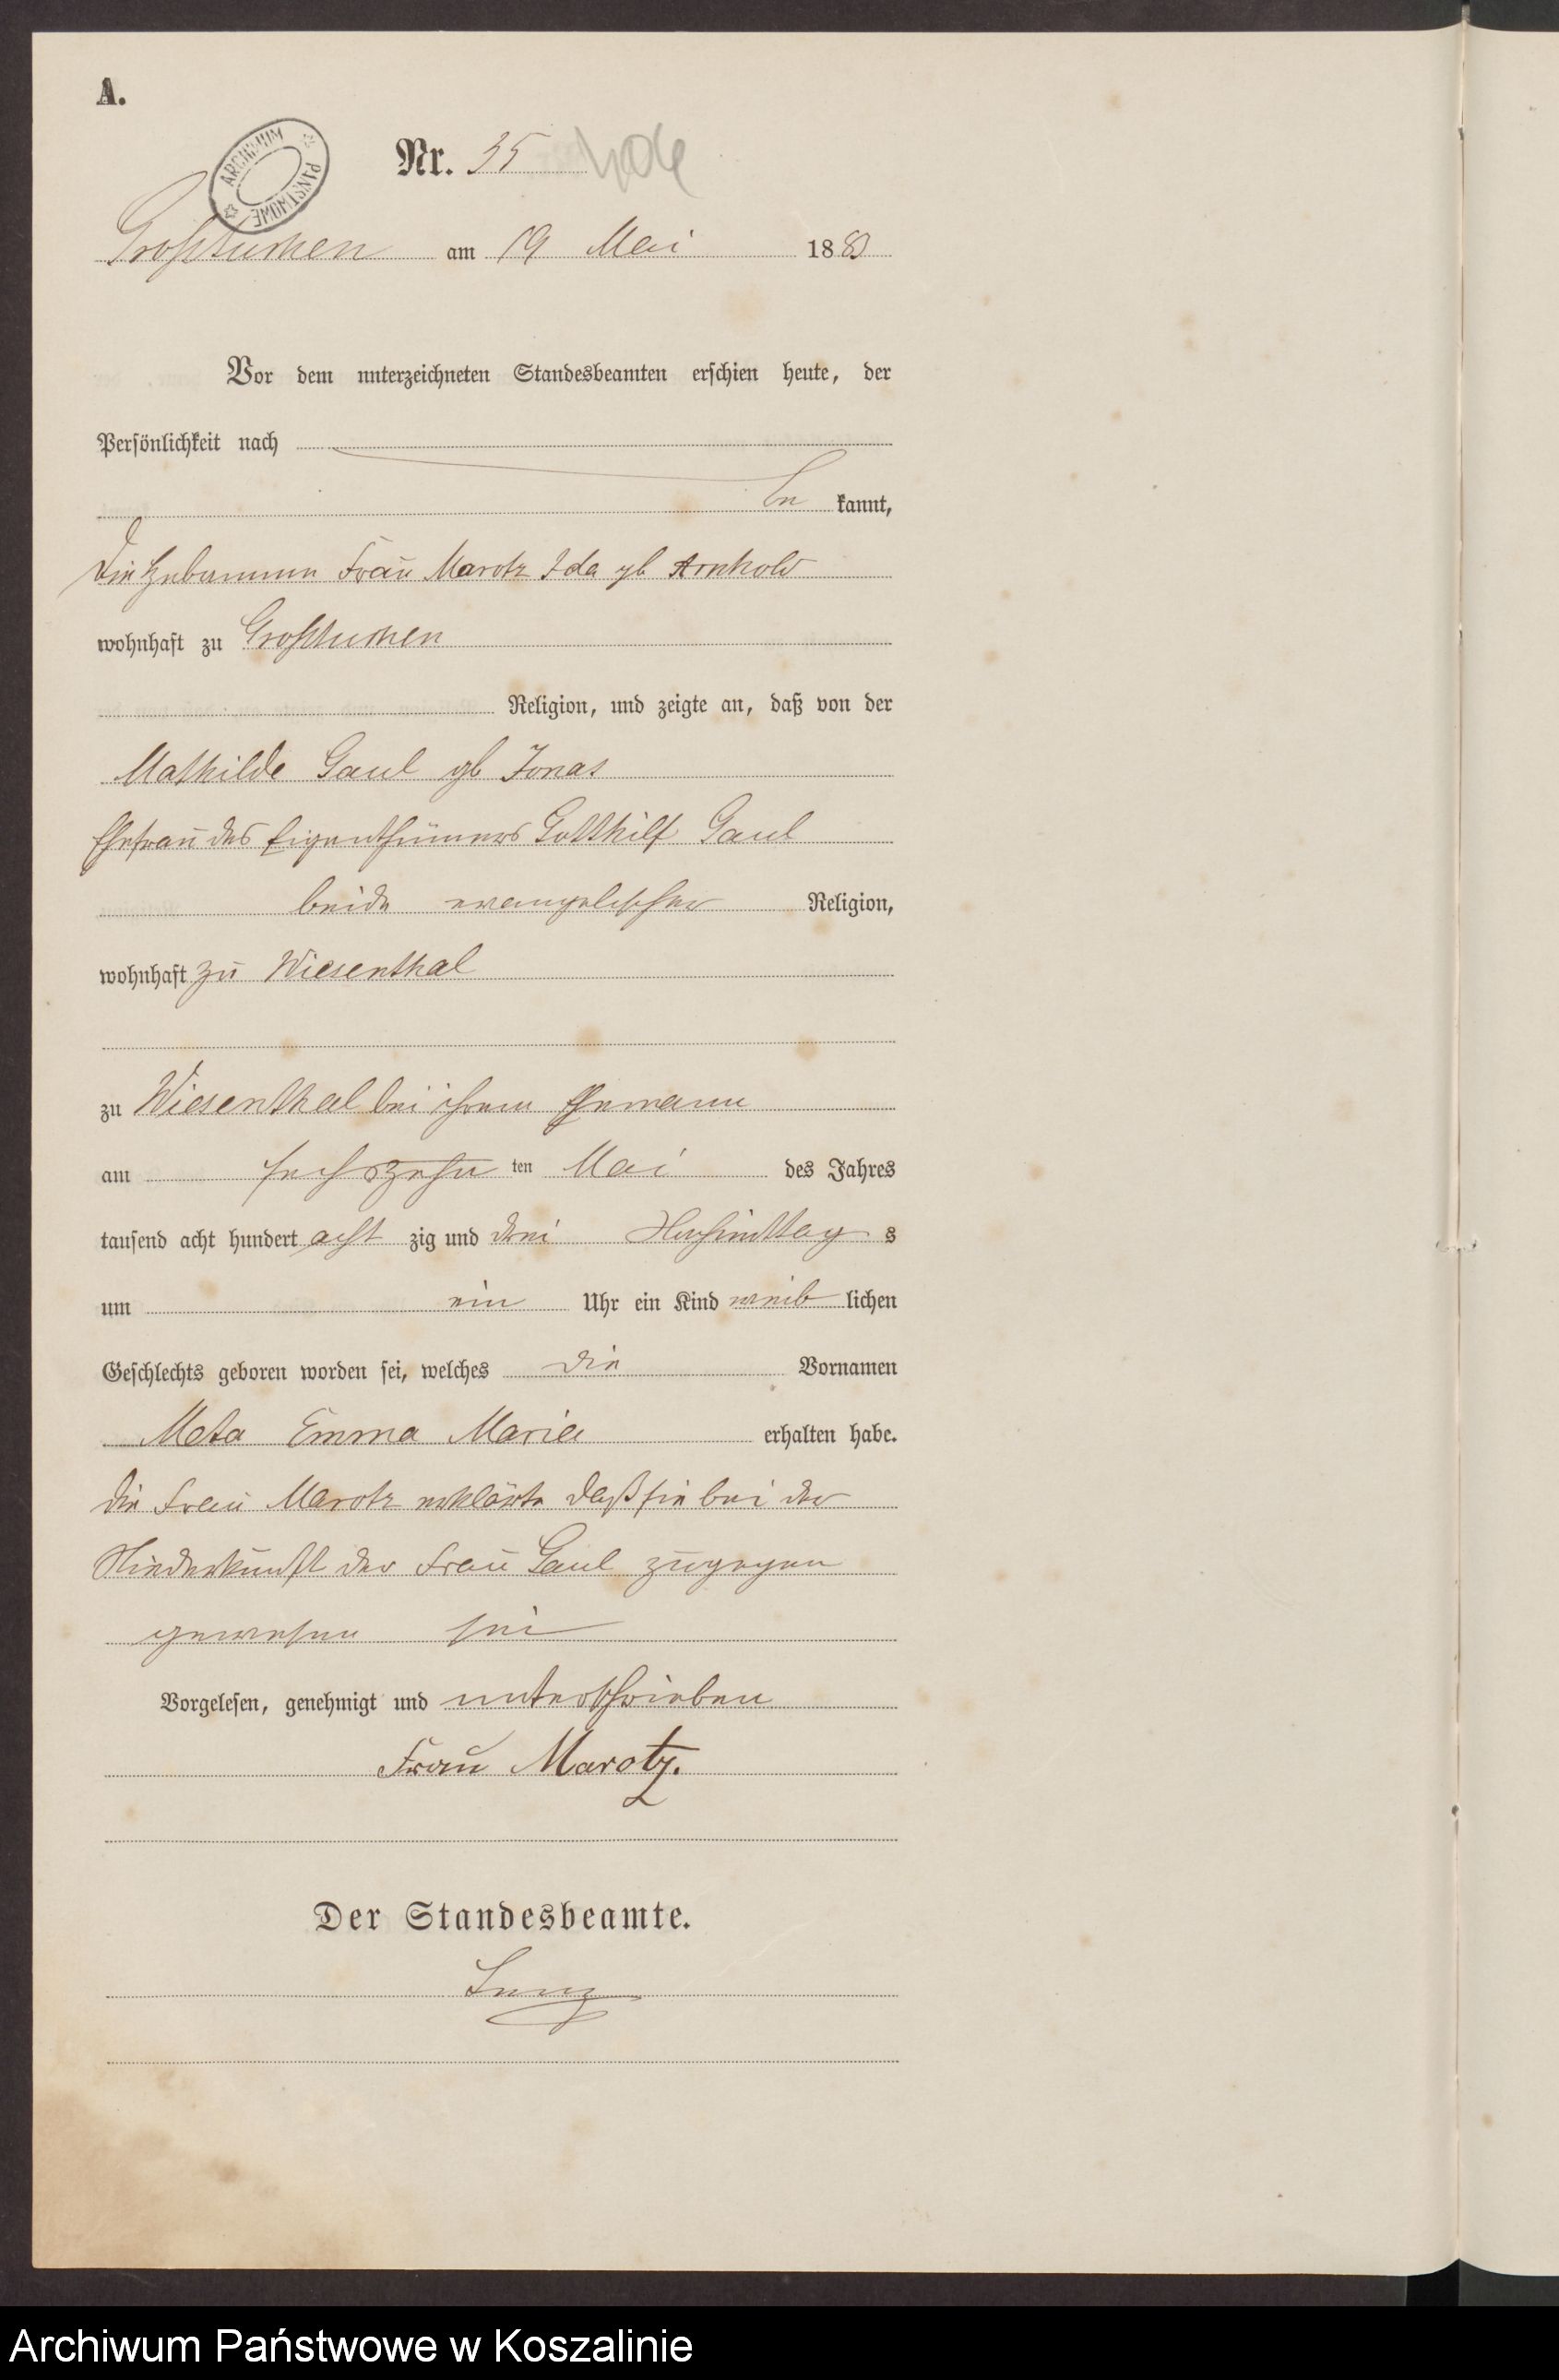 A.
ARCHIWUM PAŃSTWOWE
Nr. 35
Großtuchen am 19 Mai 1883
Vor dem unterzeichneten Standesbeamten erschien heute, der
Persönlichkeit nach
be kannt,
die Hebamme Frau Marotz Ida gb Arnhold
wohnhaft zu Großtuchen
Religion, und zeigte an, daß von der
Mathilde Gaul gb Jonas
Ehefrau des Eigenthümers Gotthilf Gaul
beide evangelischer Religion,
wohnhaft zu Wiesenthal
zu Wiesenthal bei ihrem Ehemann
am sechszehn ten Mai des Jahres
tausend acht hundert acht zig und drei Nachmittag s
um ein Uhr ein Kind weib lichen
Geschlechts geboren worden sei, welches die Vornamen
Meta Emma Marie erhalten habe.
die Frau Marotz erklärte daß sie bei der
Niederkunft der Frau Gaul zugegen
gewesen sei
Vorgelesen, genehmigt und unterschrieben
Frau Marotz.
Der Standesbeamte.
Archiwum Państwowe w Koszalinie